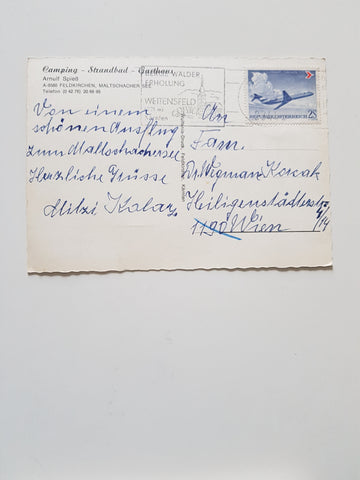 Camping - Strandbad - Gasthaus
Arnulf Spieß
A-9560 FELDKIRCHEN, MALTSCHACHER SEE
Telefon (0 42 76) 20 66
WALDER
ERHOLUNG
WEITENSFELD
REPUBLIK ÖSTERREICH 2S
Von einem
schönen Ausflug
zum Maltschachersee
Herzliche Grüsse
Mitzi
An
Fam.
Kozak
Heiligenstädterstr.
1190 Wien